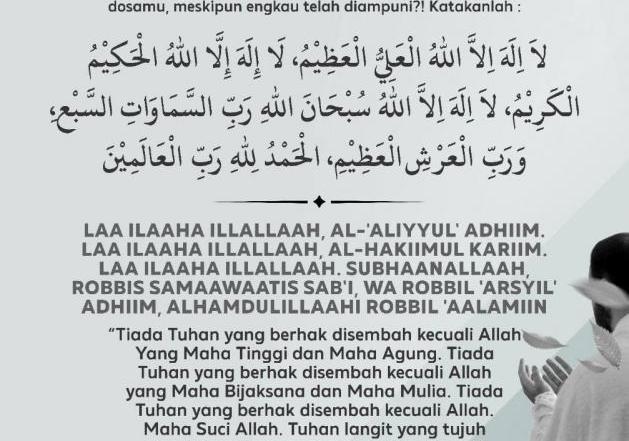 dosamu, meskipun engkau telah diampuni?! Katakanlah :
لاَ اِلَهَ اِلاَّ اللهُ الْعَلِيُّ الْعَظِيْمُ، لَا إِلَهَ إِلَّا اللهُ الْحَكِيْمُ
الْكَرِيْمُ، لاَ اِلَهَ اِلاَّ اللهُ سُبْحَانَ اللهِ رَبِّ السَّمَاوَاتِ السَّبْعِ،
وَرَبِّ الْعَرْشِ الْعَظِيْمِ، الْحَمْدُ لِلهِ رَبِّ الْعَالَمِيْنَ
LAA ILAAHA ILLALLAAH, AL-'ALIYYUL' ADHIIM.
LAA ILAAHA ILLALLAAH, AL-HAKIIMUL KARIIM.
LAA ILAAHA ILLALLAAH. SUBHAANALLAAH,
ROBBIS SAMAAWAATIS SAB'I, WA ROBBIL 'ARSYIL'
ADHIIM, ALHAMDULILLAAHI ROBBIL 'AALAMIIN
“Tiada Tuhan yang berhak disembah kecuali Allah
Yang Maha Tinggi dan Maha Agung. Tiada
Tuhan yang berhak disembah kecuali Allah
yang Maha Bijaksana dan Maha Mulia. Tiada
Tuhan yang berhak disembah kecuali Allah.
Maha Suci Allah. Tuhan langit yang tujuh